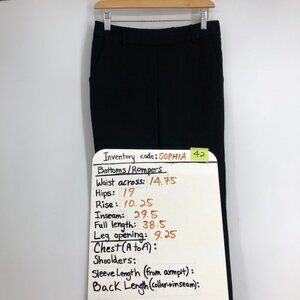 Inventory code: SOPHIA 42
Bottoms/Rompers
Waist across: 14.75
Hips: 19
Rise: 10.25
Inseam: 29.5
Full length: 38.5
Leg opening: 9.25
Chest (A to A):
Shoulders:
Sleeve Length (from armpit):
Back Length (collar→inseam):